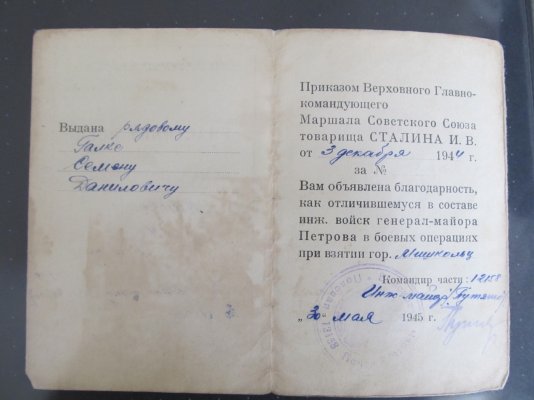 Выдана рядовому
Галке
Семену
Даниловичу
Приказом Верховного Главно-
командующего
Маршала Советского Союза
товарища СТАЛИНА И. В.
от 3 декабря 1944 г.
за №
Вам объявлена благодарность,
как отличившемуся в составе
инж. войск генерал-майора
Петрова в боевых операциях
при взятии гор. Мишкольц
Командир части: 12158
Инж-майор
„30 мая 1945 г.